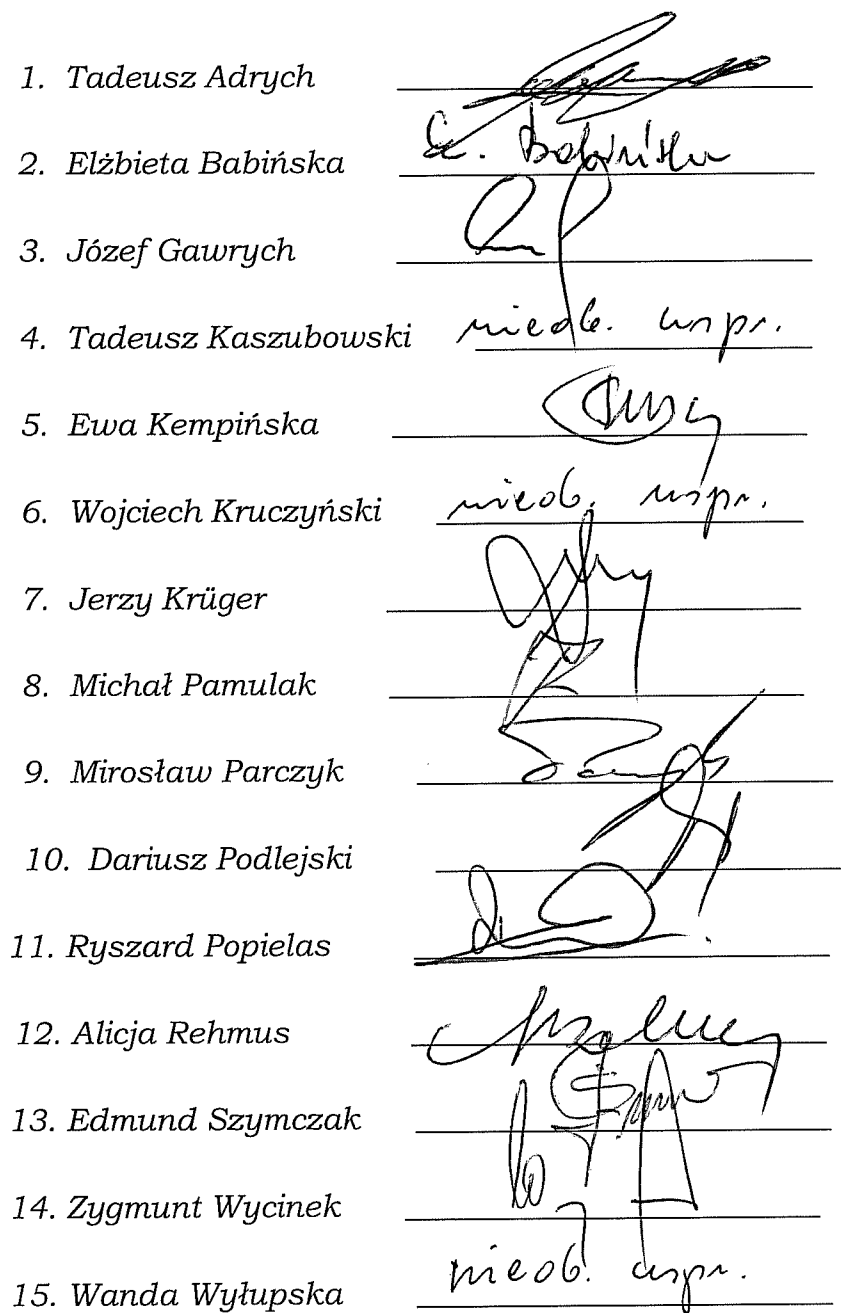 1. Tadeusz Adrych
2. Elżbieta Babińska E. Babińska
3. Józef Gawrych
4. Tadeusz Kaszubowski nieob. uspr.
5. Ewa Kempińska
6. Wojciech Kruczyński nieob. uspr.
7. Jerzy Krüger
8. Michał Pamulak
9. Mirosław Parczyk
10. Dariusz Podlejski
11. Ryszard Popielas
12. Alicja Rehmus
13. Edmund Szymczak
14. Zygmunt Wycinek
15. Wanda Wyłupska nieob. uspr.